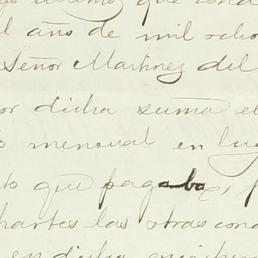 l años de mil ocho
Señor Martinez del
or dicha suma el
o mensual en lug
to que pagaba,
hartes las otras cond
en dicha